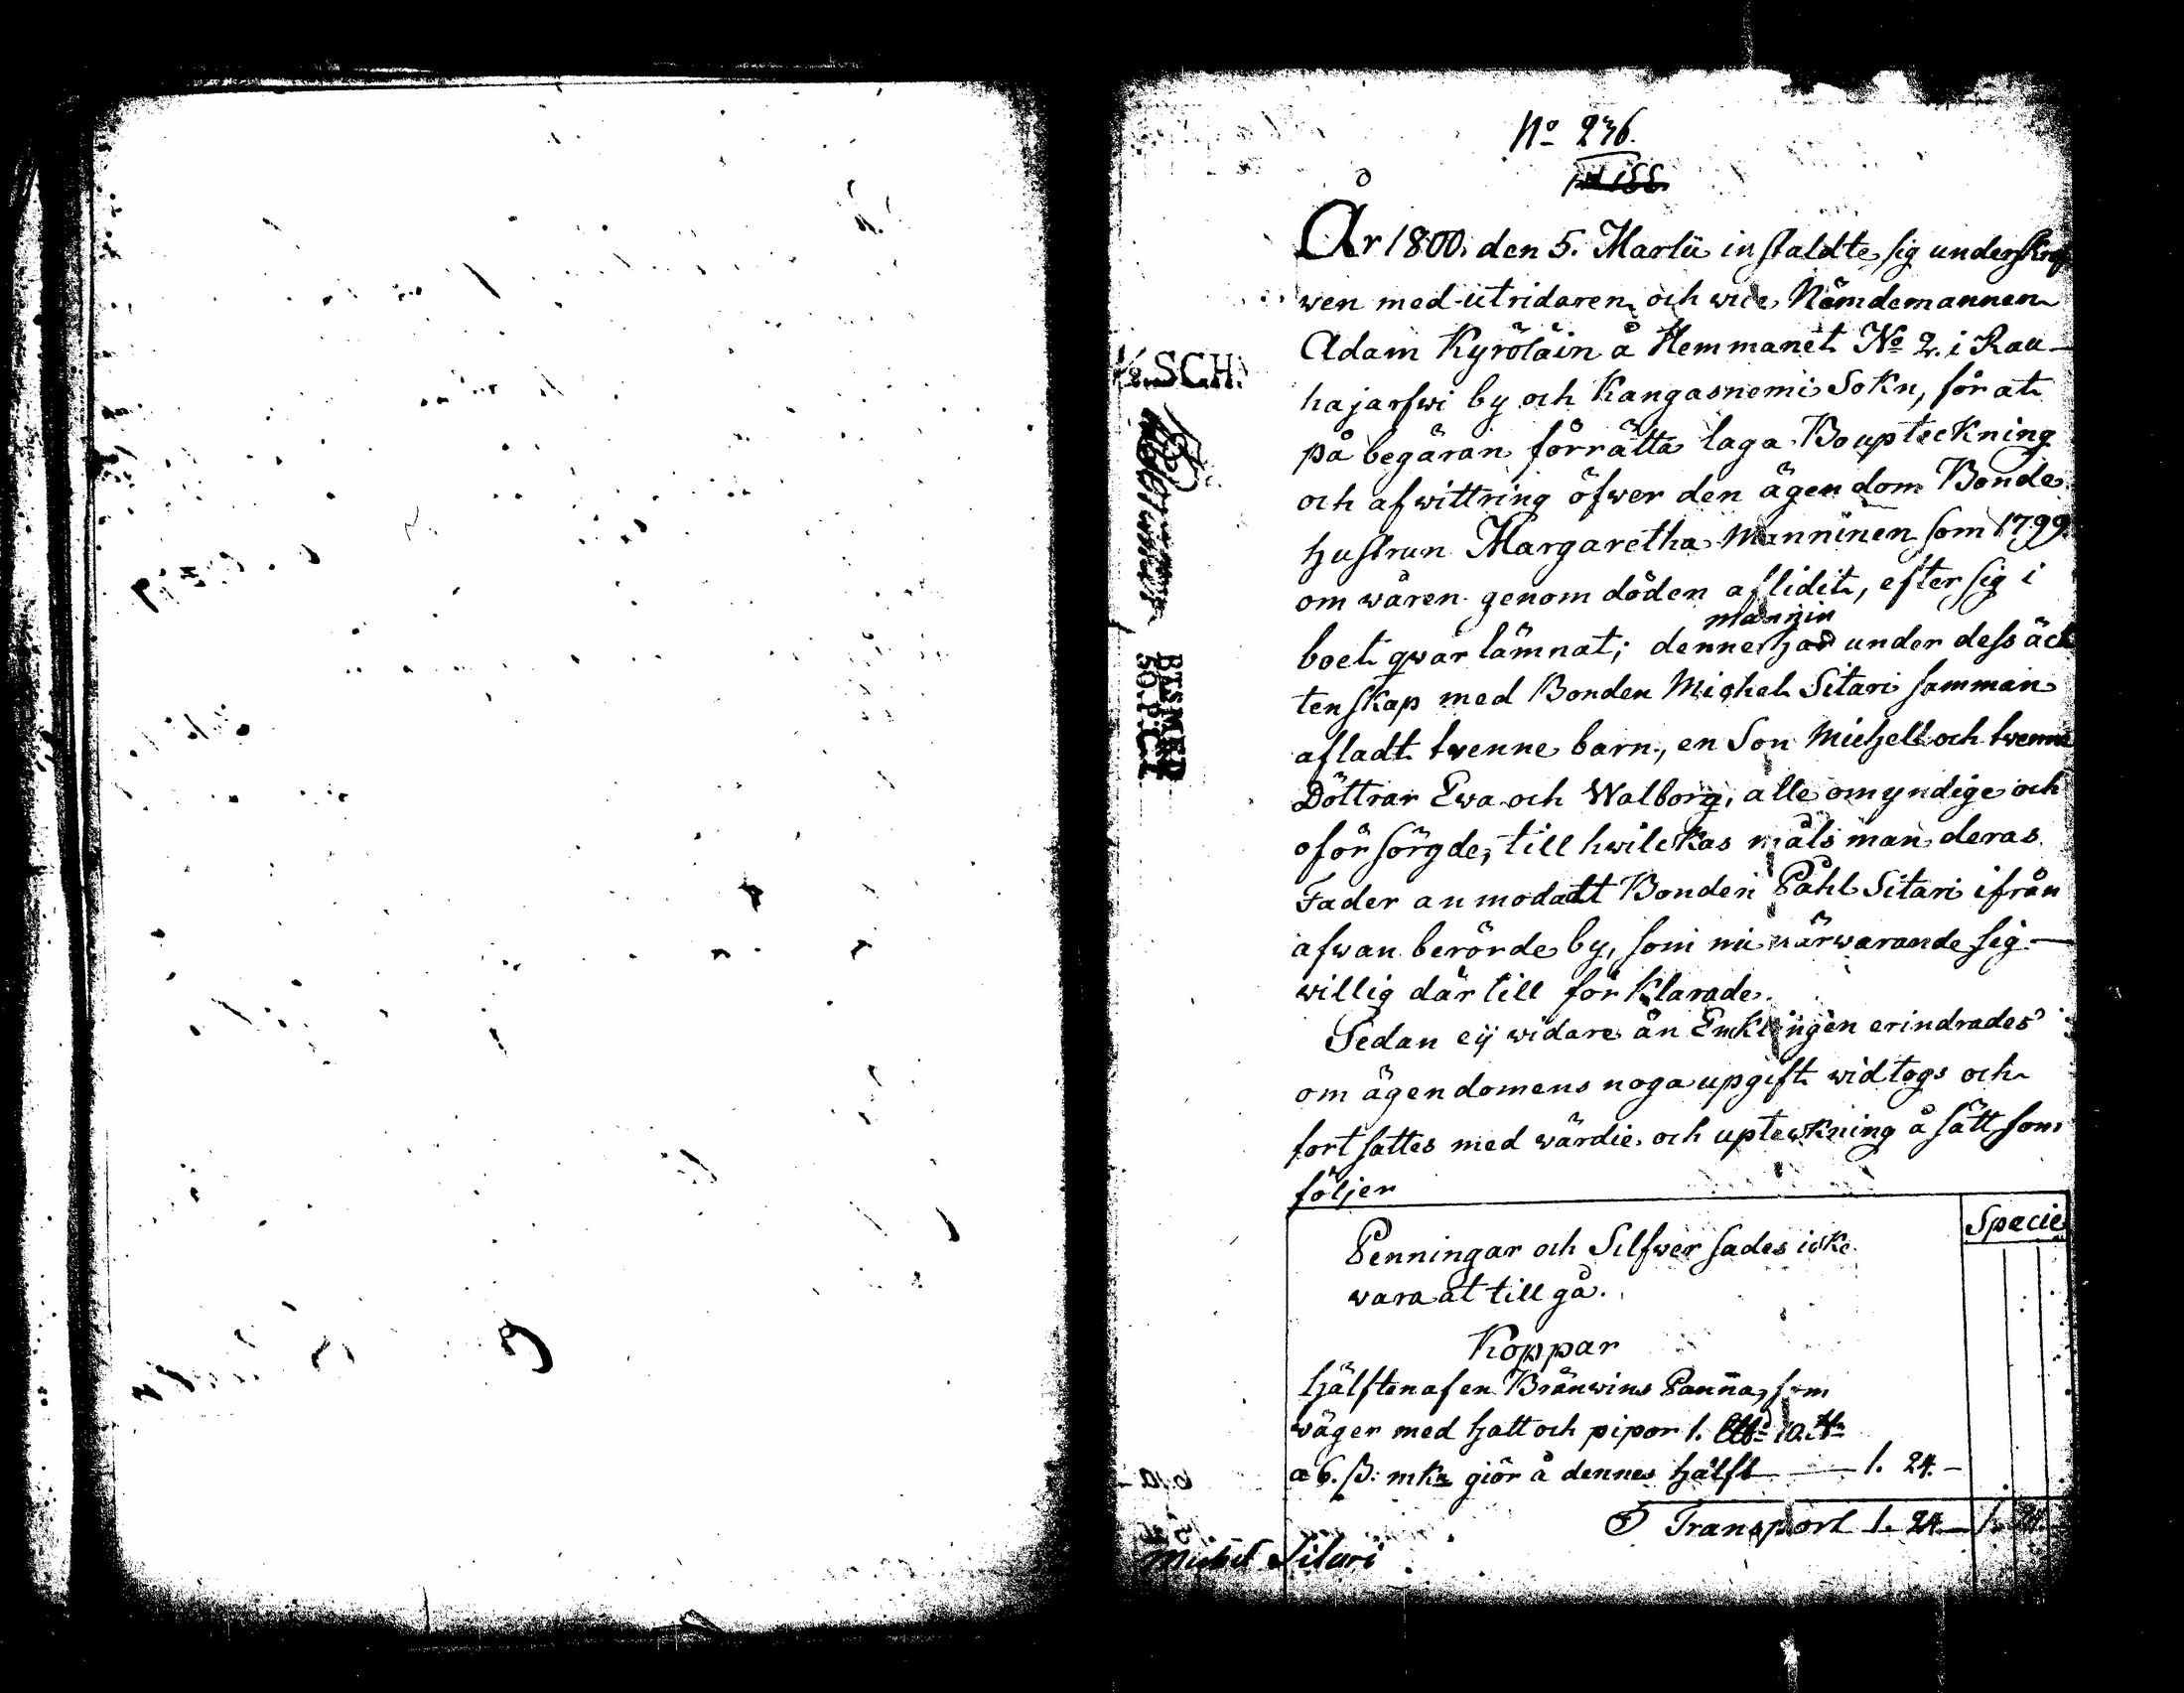 No 236.
År 1800. den 5. Martii instaldte sig underskref
wen med utridaren och wice Nämdemannen
Adam Kyröläin å Hemmanet No 2. i Rau-
hajarfwi by och Kangasnemi Sokn, för at
på begäran förrätta laga Boupteckning
och afwittring öfwer den ägendom Bonde
hustrun Margaretha Manninen som 1799.
om wåren genom döden aflidit, efter sig i
mannin
boet qwar lämnat; denne har under dess äck
tenskap med Bonden Michel Sitari samman
afladt twenne barn, en Son Michell och twenne
Döttrar Ewa och Walborg, alle omyndige och
oförsörgde, till hwilckas målsman deras
Fader anmodadt Bonden Påhl Sitari ifrån
afwan berörde by, som nu närwarande sig
willig där till förklarade.
Sedan eij widare än Enklingen erindrades
om ägendomens noga upgift widtogs och
fortsattes med wärdie och upteckning å sätt som
följer
Specie
Penningar och Silfwer sades icke
wara at tillgå.
Koppar
Hälften af en Bränwins Panna, som
wäger med hatt och pipor 1. 10.
a 6. ß: mka giör å dennes hälft — 1. 24. —
Transport 1. 24. —
Michel Sitari
½ SCH:
BTSMKD
50.P.C.T